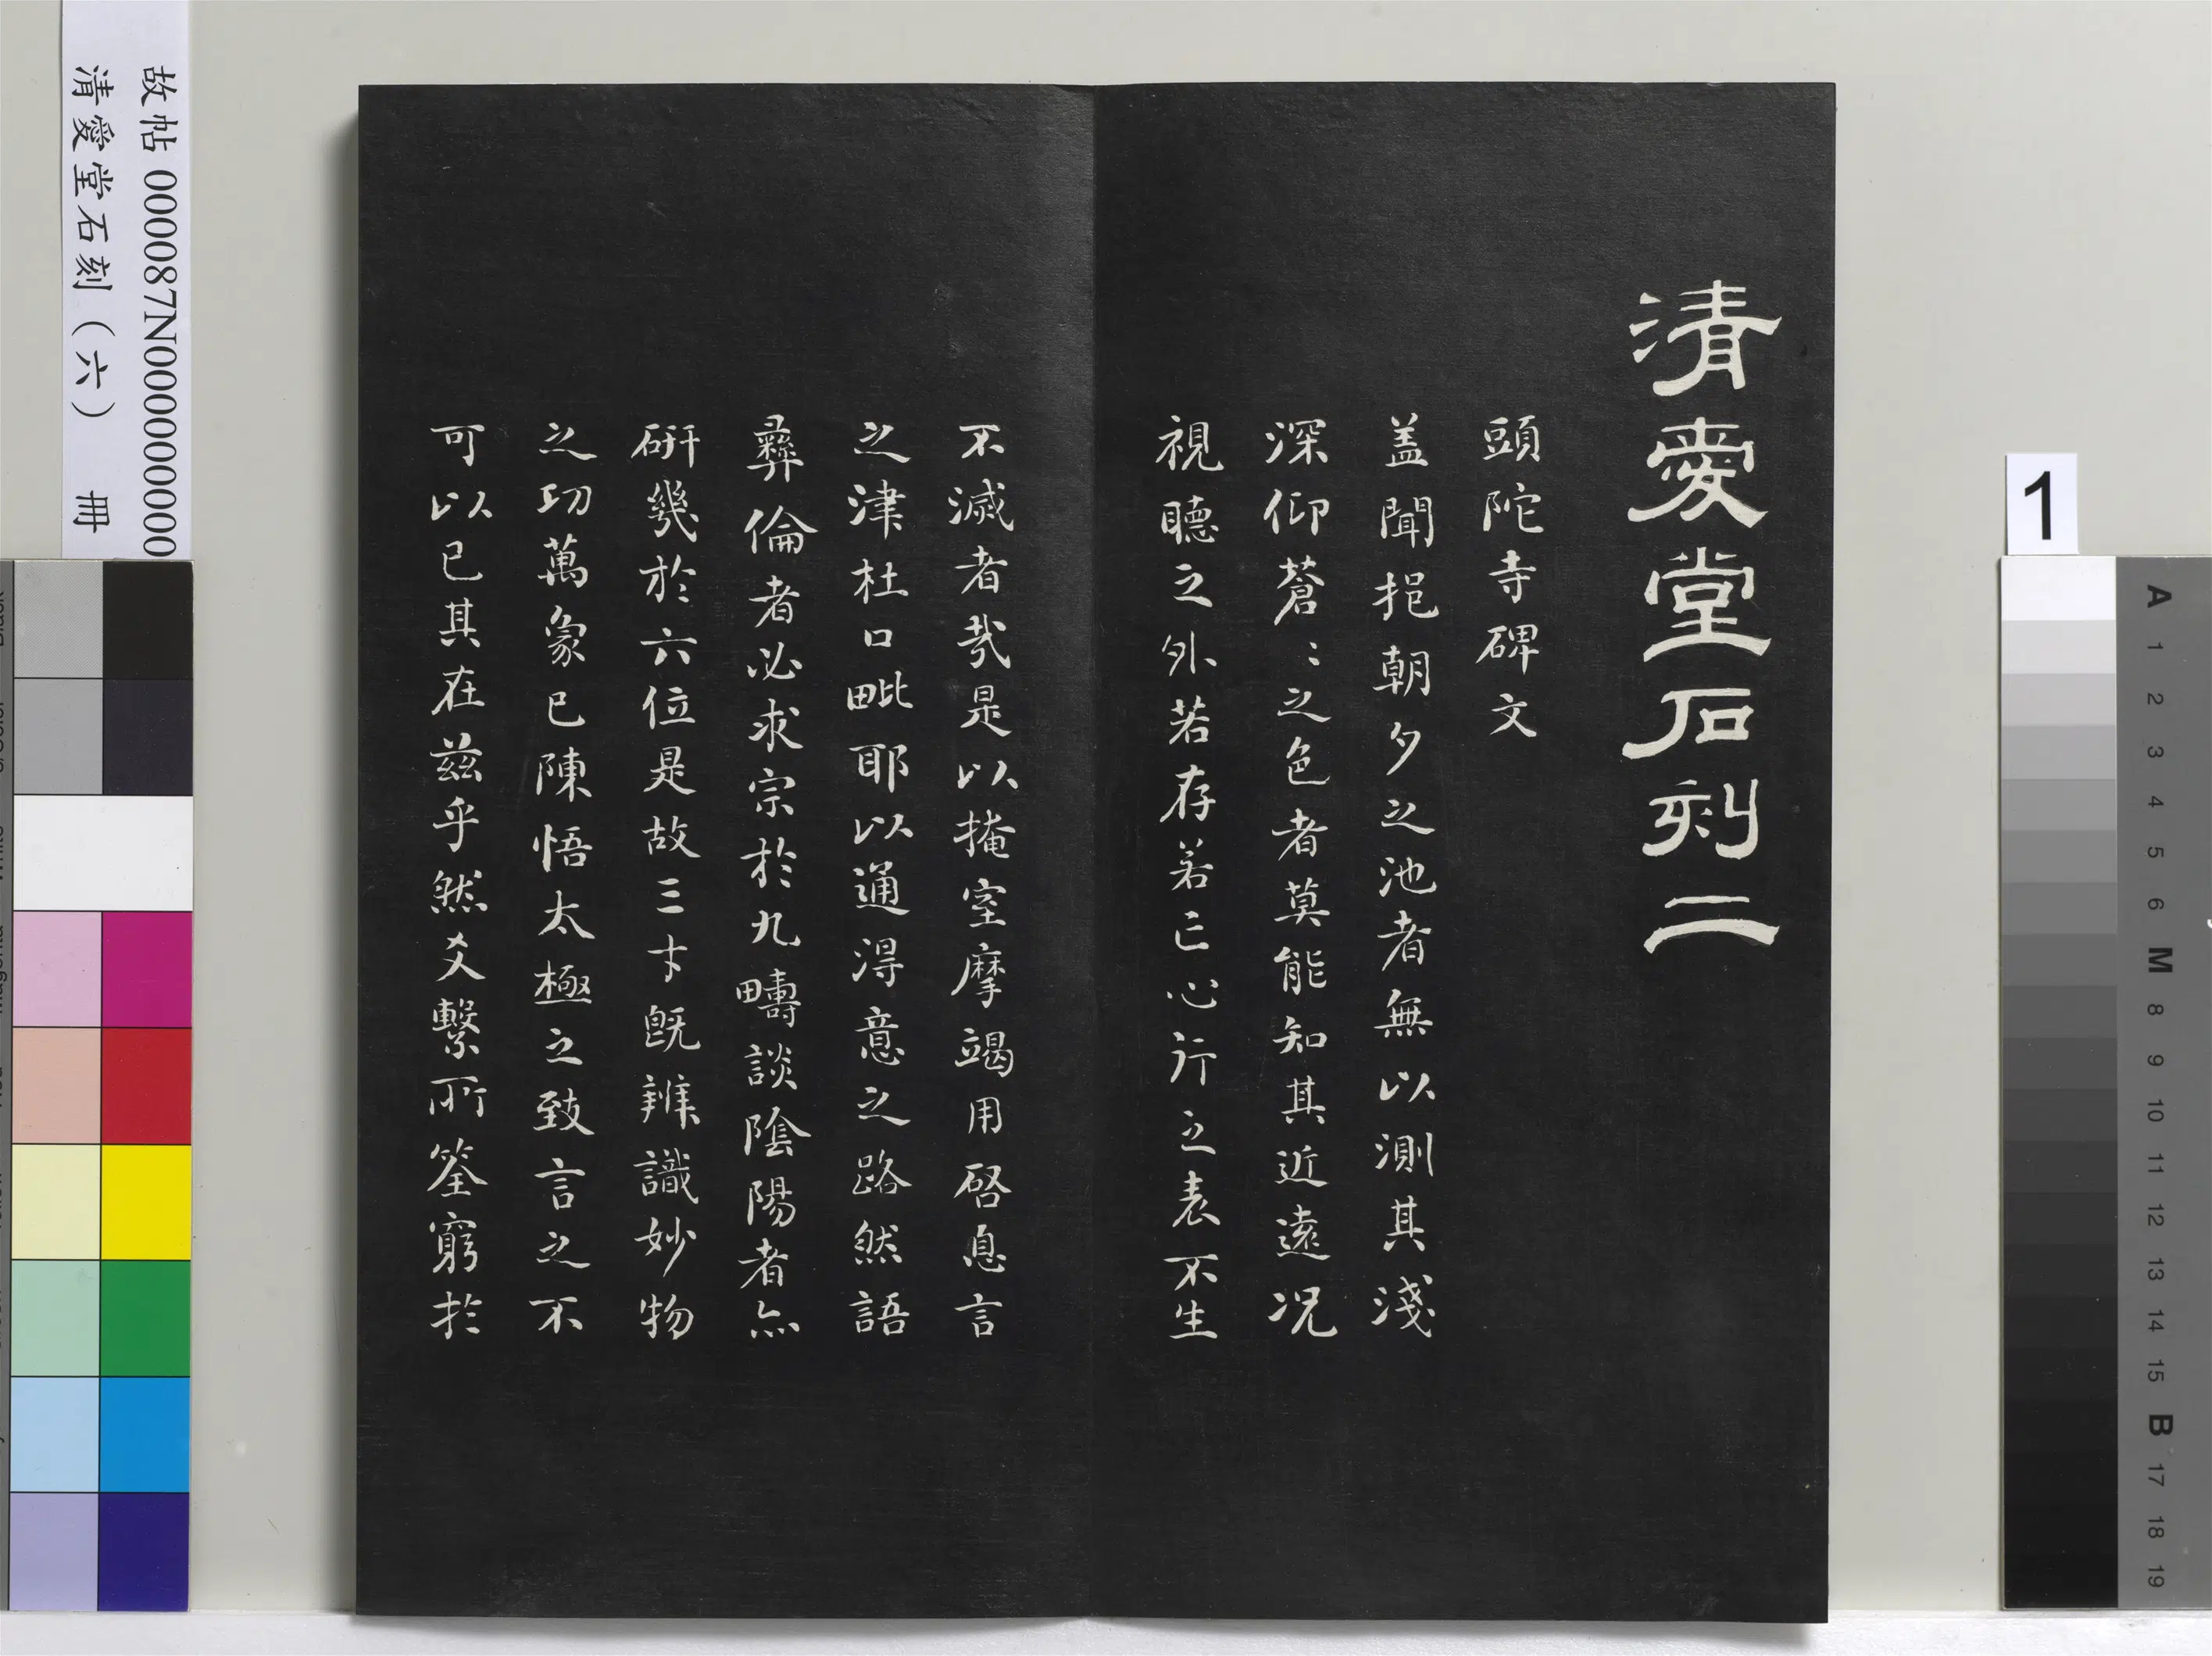 清愛堂石刻二
頭陀寺碑文
盖聞挹朝夕之池者無以測其淺
深仰蒼〻之色者莫能知其近遠况
視聽之外若存若亡心行之表不生
不滅者哉是以掩室摩竭用啓息言
之津杜口毗耶以通淂意之路然語
彝倫者必求宗於九疇談陰陽者亦
研幾於六位是故三才旣辨識妙物
之功萬象已陳悟太極之致言之不
可以已其在茲乎然爻繫所筌窮於
故帖 000087N000000000
清愛堂石刻（六） 冊
1
A
1
2
3
4
5
6
M
8
9
10
11
12
13
14
15
B
17
18
19